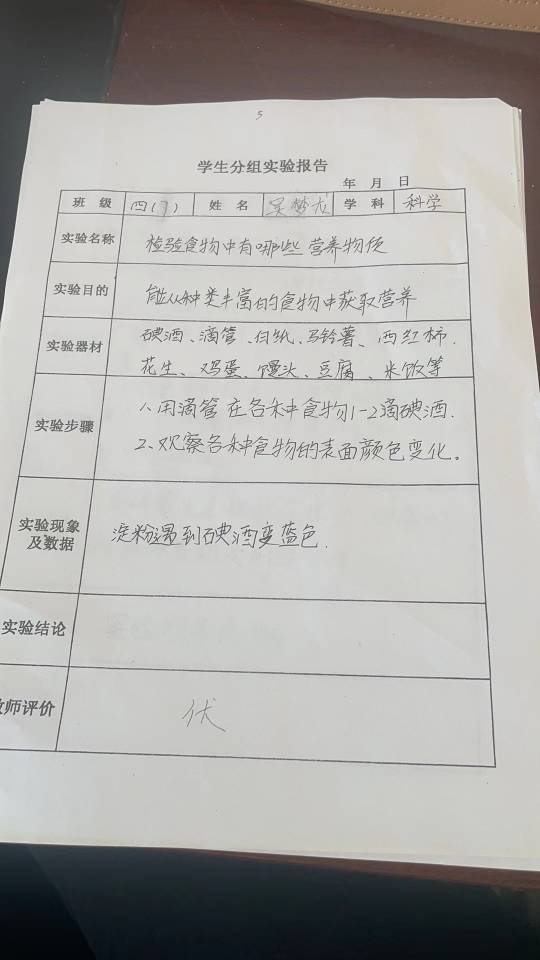 5
学生分组实验报告
年 月 日
班级 四(7) 姓名 吴梦龙 学科 科学
实验名称 检验食物中有哪些营养物质
实验目的 能从种类丰富的食物中获取营养
实验器材 碘酒、滴管、白纸、马铃薯、西红柿、
花生、鸡蛋、馒头、豆腐、米饭等
实验步骤 1、用滴管在各种食物1-2滴碘酒.
2、观察各种食物的表面颜色变化。
实验现象
及数据 淀粉遇到碘酒变蓝色.
实验结论
教师评价